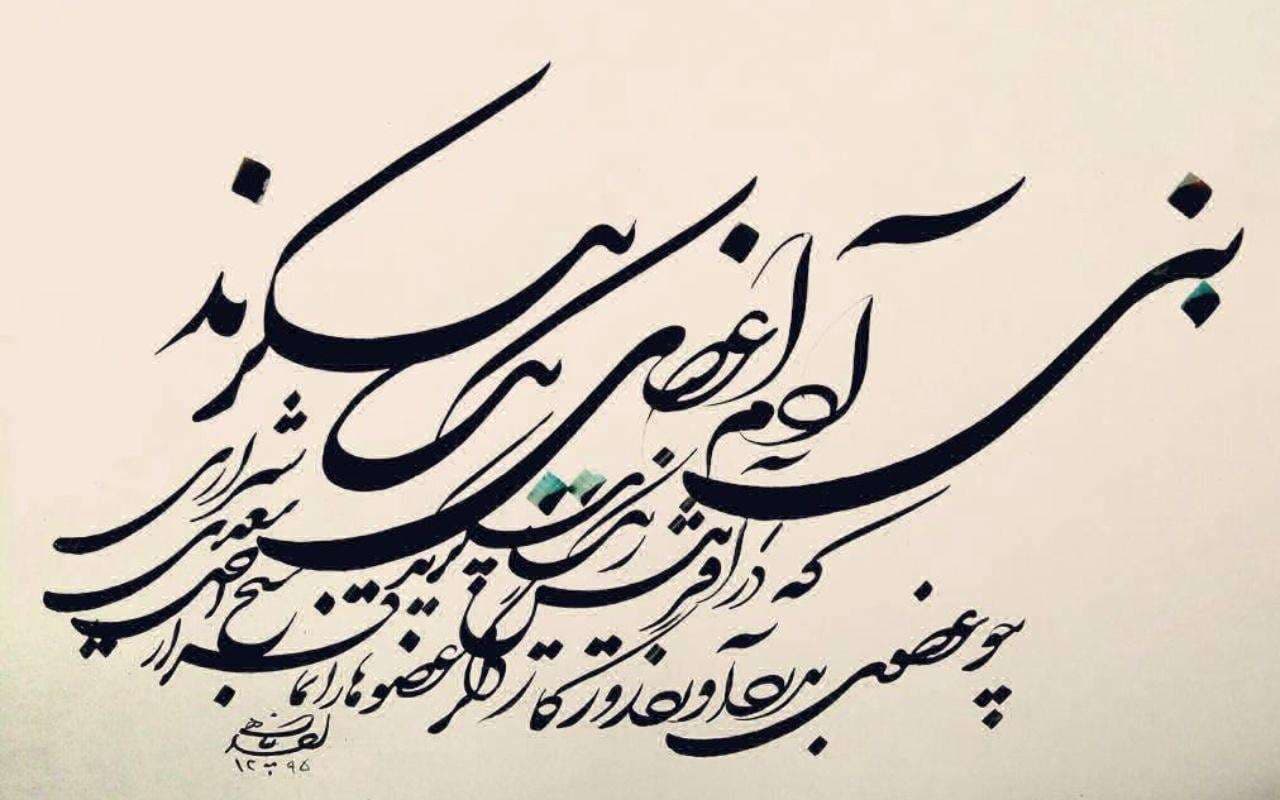 بنی آدم اعضای یکدیگرند
که در آفرینش ز یک
چو عضوی بدرد آورد روزگار دگر عضوها را نماند قرار
شیخ اجل
سعدی
شیرازی
۹۵
۱۲